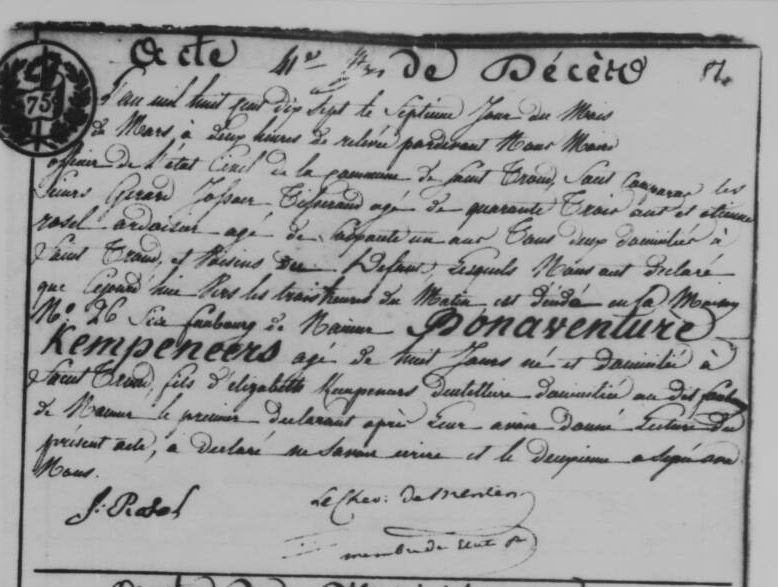 Acte 41e de Décès
75
L'an mil huit cent dix Sept le Septieme Jour du Mois
de Mars, à deux heures de relevée pardevant Nous Maire
officier de l'état Civil de la commune de Saint Trond, Sont Comparus les
Sieurs Gerard Tisserand agé de quarante Trois ans et etienne
rosel ardoisier agé de Soixante un ans Tous deux domiciliés à
Saint Trond, et Voisins du Defunt, Lesquels Nous ont declaré
que cejourd'hui Vers les trois heures du Matin est décédé en Sa Maison
No. 26 Sise faubourg de Namur Bonaventure
Kempeneers agé de huit Jours né et domicilié à
Saint Trond, fils d'elizabeth Kempeneers dentelliere domiciliée au dit faubg
de Namur le premier declarant après Leur avoir donné Lecture du
présent acte, a declaré ne Savoir ecrire et le deuxieme a Signé avec
Nous.
Le Chev. de Menten
membre de